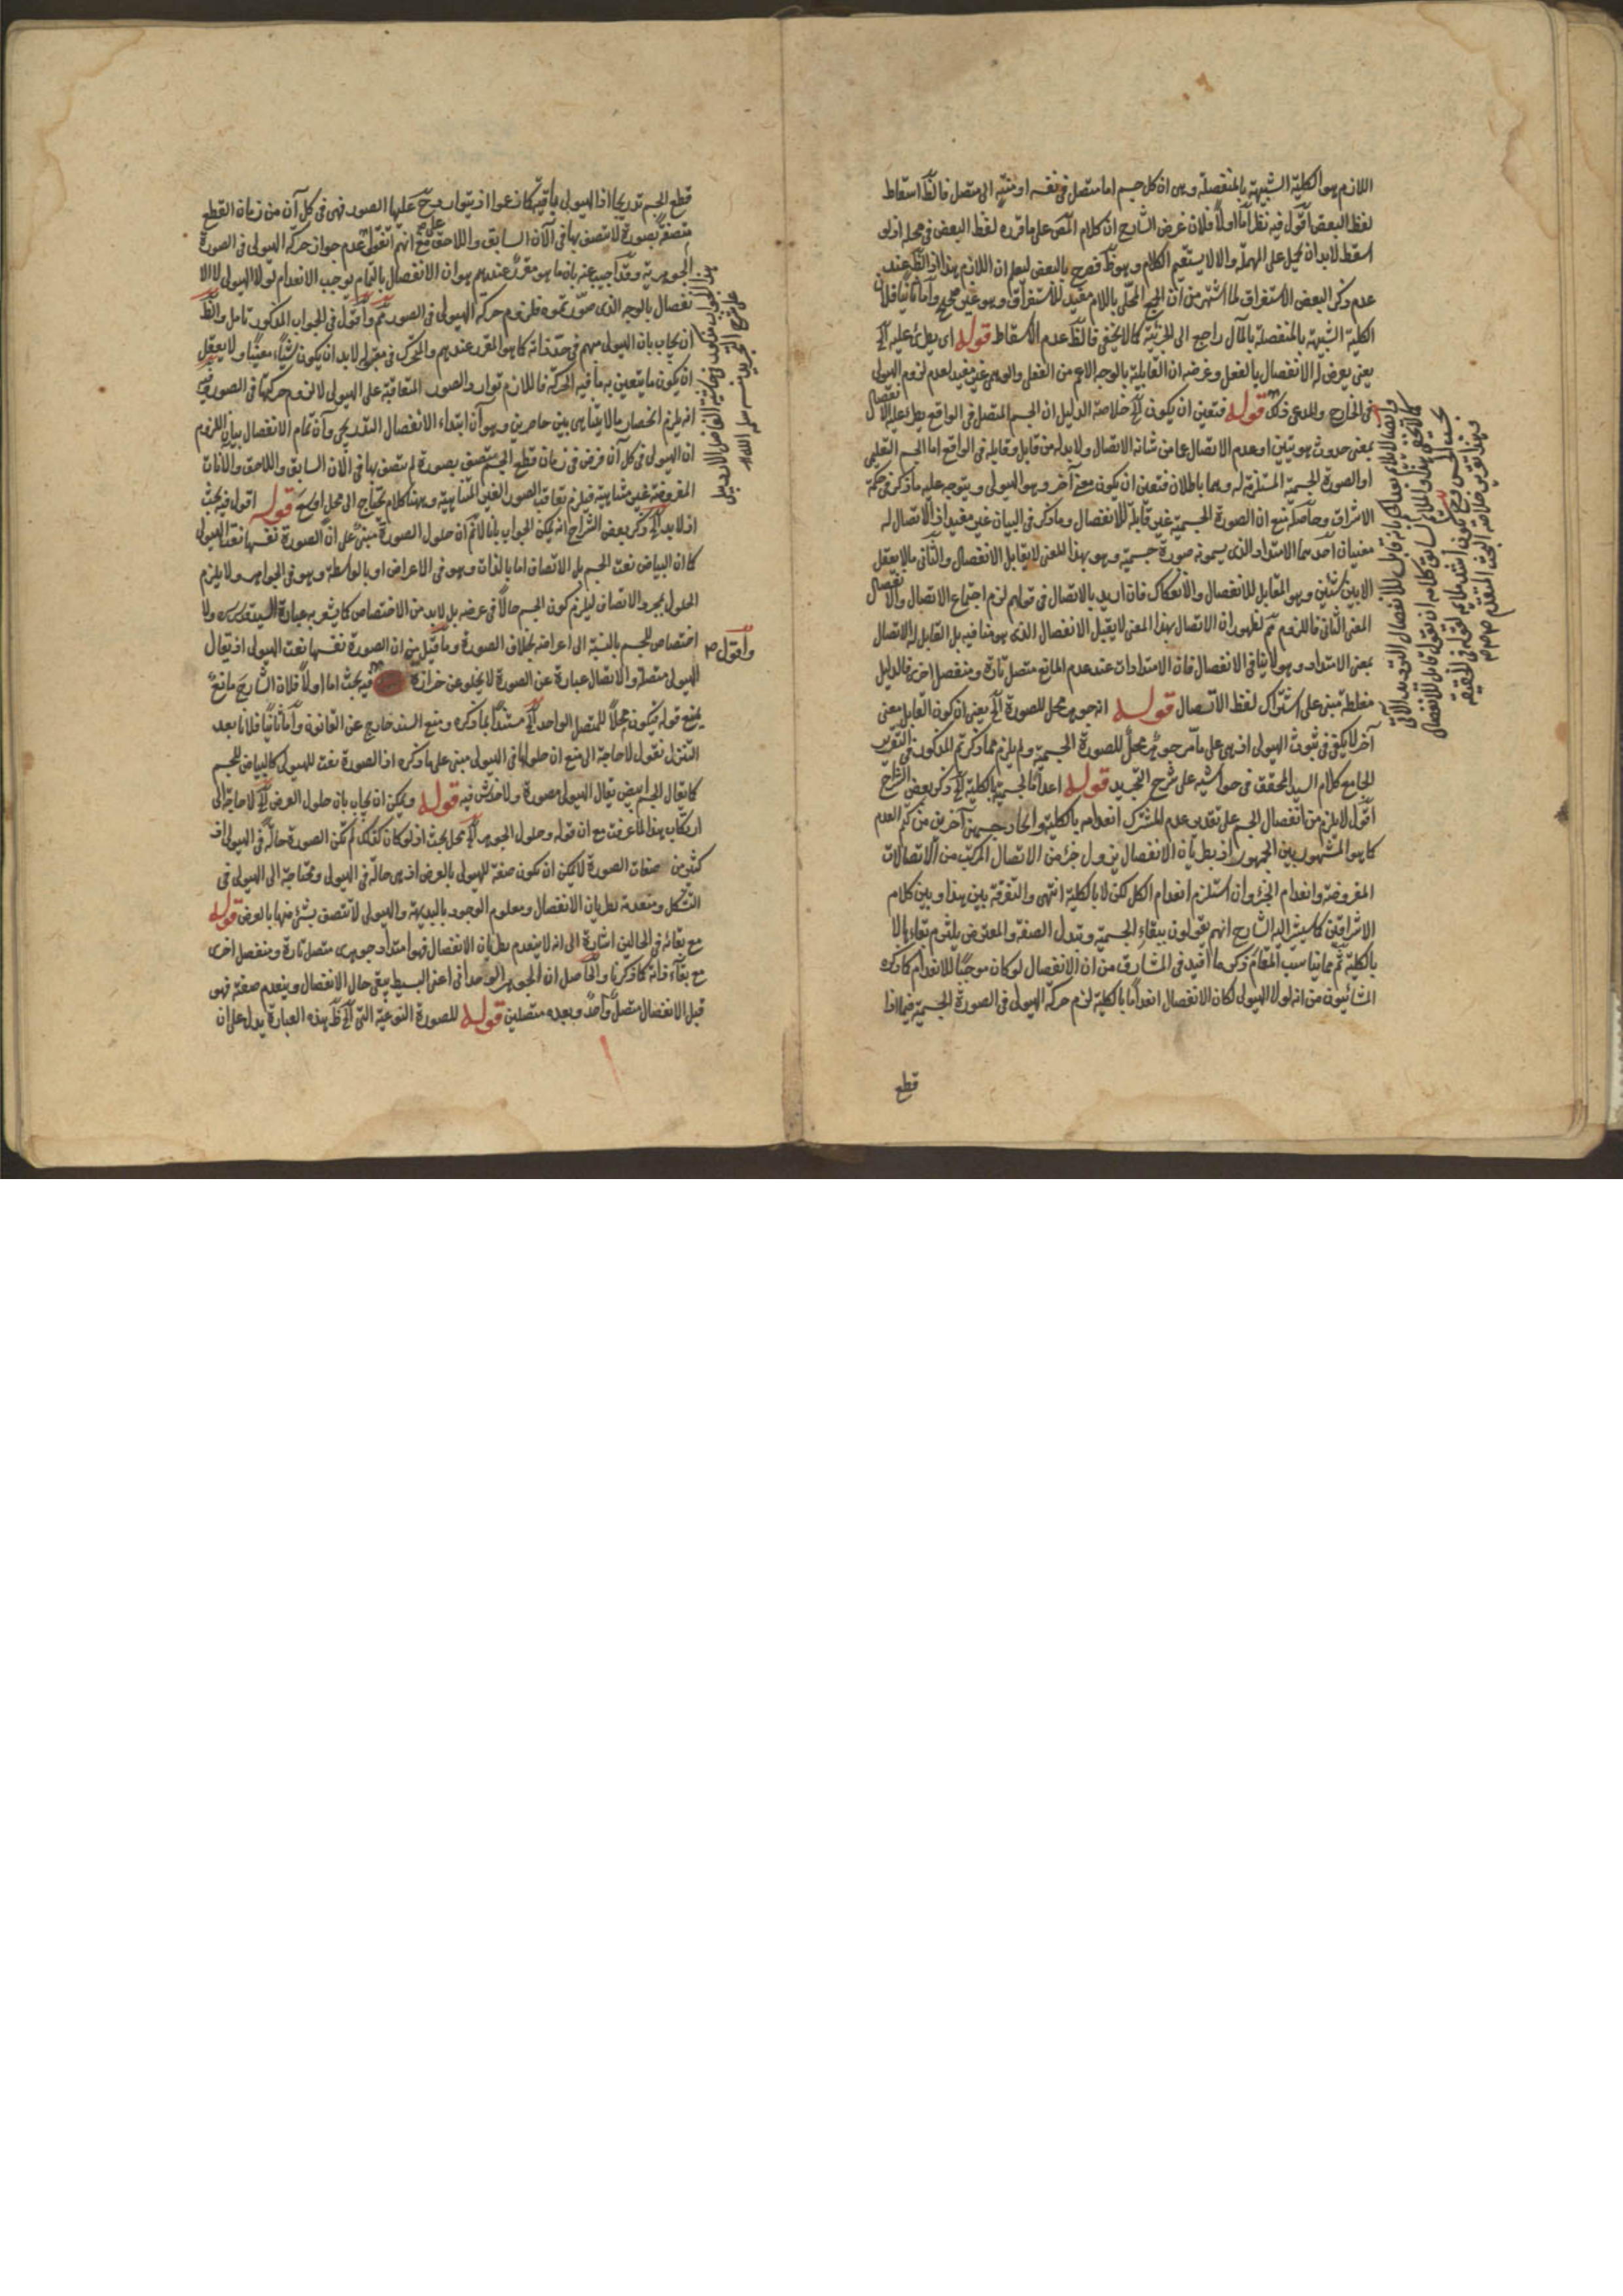 اللازم هو الكلية الشبيهة بالمنفصلة وهى ان كل جسم اما متصل فى نفسه او منته الى متصل فالظ اسقاط
لفظ البعض اقول فيه نظر اما اولا فلان غرض الشارح ان كلام المص على ما قرره لفظ البعض فى محله اذ لو
اسقط لابد ان يحمل على المهملة والا لا يستقيم الكلام وهو ظ فصرح بالبعض ليعلم ان اللازم هذا اذ الظ عند
عدم ذكر البعض الاستغراق لما اشتهر من ان الجمع المحلى باللام مفيد للاستغراق وهو غير صحيح واما ثانيا فلان
الكلية الشبيهة بالمنفصلة بالمآل راجع الى الجزئية كما لا يخفى فالظ عدم الاسقاط قوله اى يطرئ عليه الخ
يعنى يعرض له الانفصال بالفعل وغرضه ان القابلية بالوجه الاعم من الفعل والوهمى غير مفيد لعدم لزوم الهيولى
فى الخارج والمدعى ذلك قوله فتعين ان يكون الخ خلاصة الدليل ان الجسم المتصل فى الواقع يطرء عليه الانفصال
بمعنى حدوث هويتين او عدم الاتصال عما من شانه الاتصال ولابد له من قابل وقابله فى الواقع اما الجسم التعليمى
او الصورة الجسمية المستلزمة له وهما باطلان فتعين ان يكون معنى آخر وهو الهيولى ويتوجه عليه ما ذكر فى حكمة
الاشراق وحاصله منع ان الصورة الجسمية غير قابلة للانفصال وما ذكر فى البيان غير مفيد اذ للاتصال له
معنيان احدهما الامتداد الذى يسمونه صورة جسمية وهو بهذا المعنى لا يقابل الانفصال والثانى ما لا يعقل
الا بين شيئين وهو المقابل للانفصال والانفكاك فان اريد بالاتصال فى قولهم لزم اجتماع الاتصال والانفصال
المعنى الثانى فاللزوم مم لظهور ان الاتصال بهذا المعنى لا يقبل الانفصال الذى هو منافيه بل القابل له الاتصال
بمعنى الامتداد وهو لا ينافى الانفصال فان الامتدادات عند عدم المانع متصل تارة ومنفصل اخرى فالدليل
مغلطة مبنى على اشتراك لفظ الاتصال قوله انه جوهر محل للصورة الخ يعنى ان كون القابل معنى
آخر لا يكفى فى ثبوت الهيولى اذ هى على ما مر جوهر محل للصورة الجسمية ولم يلزم مما ذكر ثم المذكور فى التقرير
الجامع كلام السيد المحقق فى حواشيه على شرح التجريد قوله اعداما لجسمه بالكلية الخ ذكر بعض الشراح
اقول لا يلزم من انفصال الجسم على تقدير عدم المشترك انعدامه بالكلية وايجاد جسمين آخرين من كتم العدم
كما هو المشهور بين الجمهور اذ بطريان الانفصال يزول جزء من الاتصال المركب من الاتصالات
المفروضة وانعدام الجزء وان استلزم انعدام الكل لكن لا بالكلية انتهى والتفرقة بين هذا وبين كلام
الاشراقيين كما سيشير اليه الشارح انهم يقولون ببقاء الجسمية وتبدل الصفة والمعترض يلتزم بقاء ها لا
بالكلية ثم مما يناسب المقام ذكر ما افيد فى المشارق من ان الانفصال لو كان موجبا للانعدام كما ذكره
المشائيون من انه لولا الهيولى لكان الانفصال انعداما بالكلية لزم حركة الهيولى فى الصورة الجسمية فيما اذا
قطع
قطع الجسم تدريجا اذ الهيولى باقية كما زعموا اذ يتوارد ح عليها الصور فهى فى كل آن من زمان القطع
متصفة بصورة لا تتصف بها فى الآن السابق واللاحق مع انهم اتفقوا على عدم جواز حركة الهيولى فى الصورة
الجوهرية وقد اجيب عنه بان ما هو مقرر عندهم هو ان الانفصال بالتمام يوجب الانعدام لولا الهيولى لا الا
نفصال بالوجه الذى صورتموه فلزوم حركة الهيولى فى الصور مم واقول فى الجواب المذكور تامل والظ
ان يجاب بان الهيولى مبهم فى حد ذاته كما هو المقرر عندهم والمتحرك فى مقولة لابد ان يكون شيئا معينا ولا يعقل
ان يكون ما يتعين به ما فيه الحركة فاللازم توارد الصور المتعاقبة على الهيولى لا لزوم حركتها فى الصور
انه يلزم انحصار ما لا يتناهى بين حاصرين وهو آن ابتداء الانفصال التدريجى وآن تمام الانفصال بيان اللزوم
ان الهيولى فى كل آن فرض فى زمان قطع الجسم متصف بصورة لم يتصف بها فى الآن السابق واللاحق والآنات
المفروضة غير متناهية فيلزم تعاقب الصور الغير المتناهية وههنا كلام يحتاج الى محل اوسع قوله اقول فيه بحث
اذ لابد الخ ذكر بعض الشراح انه يمكن الجواب بانا لا نم ان حلول الصورة مبنى على ان الصورة نفسها نعت الهيولى
كما ان البياض نعت الجسم بل الاتصاف اما بالذات وهو فى الاعراض او بالواسطة وهو فى الجواهر ولا يلزم
الحلول بمجرد الاتصاف ليلزم كون الجسم حالا فى عرضه بل لابد من الاختصاص كما يشعر به عبارة السيد قدس سره ولا
اختصاص للجسم بالنسبة الى اعراضه بخلاف الصورة وما قيل من ان الصورة نفسها نعت الهيولى اذ يقال
واقول
الهيولى متصلة والاتصال عبارة عن الصورة لا يخلو عن حزازة فيه بحث اما اولا فلان الشارح مانع
يمنع قوله فيكون محلا للمتصل الواحد الخ مستندا بما ذكره ومنع السند خارج عن القانون واما ثانيا فلانا بعد
التنزل نقول لا حاجة الى منع ان حلولها فى الهيولى مبنى على ما ذكره اذ الصورة نعت للهيولى كالبياض للجسم
كما يقال الجسم ابيض يقال الهيولى مصورة ولا خدش فيه قوله ويمكن ان يجاب بان حلول العرض الخ لا حاجة الى
ارتكاب هذا لما عرفت مع ان قوله وحلول الجوهر الخ محل بحث اذ لو كان كذلك لم تكن الصورة حالة فى الهيولى اذ
كثير من صفات الصورة لا يمكن ان تكون صفة للهيولى بالعرض اذ هى حالة فى الهيولى ومحتاجة الى الهيولى فى
التشكل ومنعدمة بطريان الانفصال ومعلوم الوجود بالبديهة والهيولى لا تتصف بشئ منها بالعرض قوله
مع بقائه فى الحالين اشارة الى انه لا ينعدم بطريان الانفصال فهو امتداد جوهرى متصل تارة ومنفصل اخرى
مع بقاء ذاته كما ذكرنا والحاصل ان الجوهر الوحدانى اعنى البسيط يبقى حال الانفصال وينعدم صفته فهو
قبل الانفصال متصل واحد وبعده متصلين قوله للصورة النوعية التى الخ ظ هذه العبارة يدل على ان